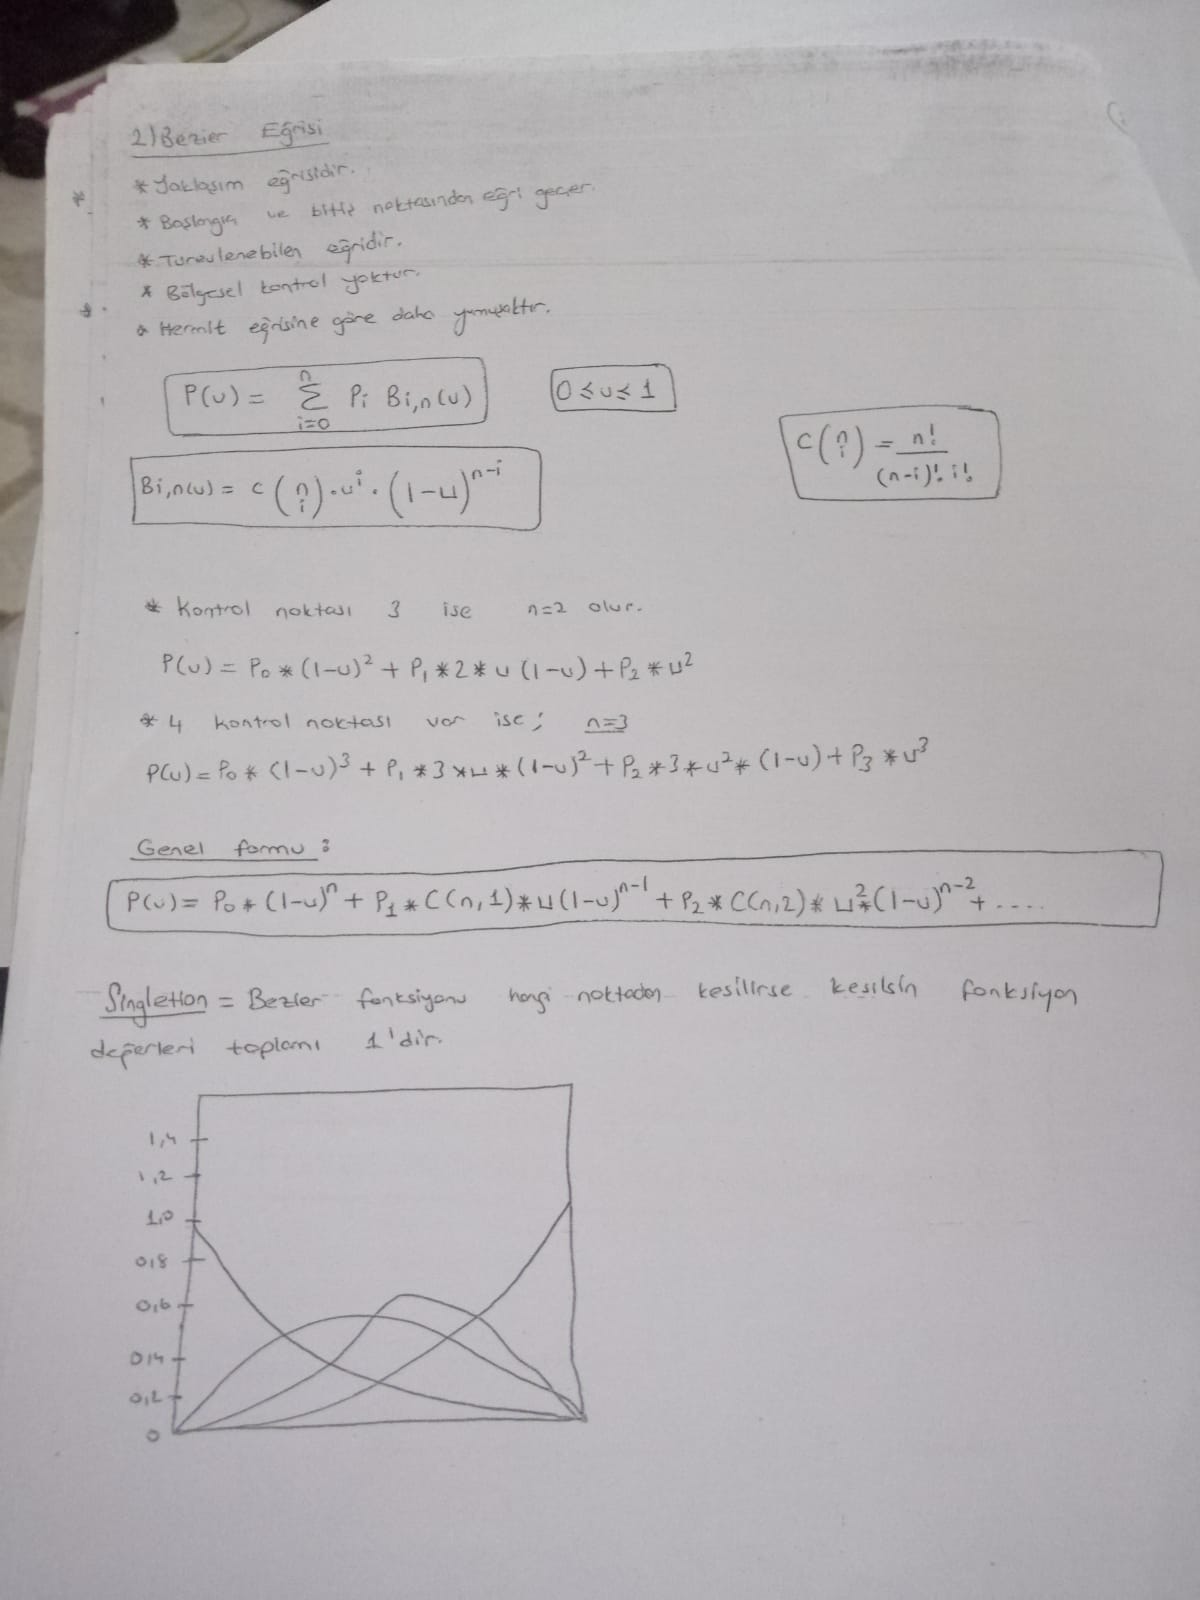 2) Bezier Eğrisi
* Yaklaşım eğrisidir.
* Başlangıç ve bitiş noktasından eğri geçer.
* Türevlenebilen eğridir.
* Bölgesel kontrol yoktur.
* Hermit eğrisine göre daha yumuşaktır.
P(u) = n Σ i=0 Pi Bi,n(u) 0 ≤ u ≤ 1
C(n i) = n! / (n-i)! . i!
Bi,n(u) = c (n i) . u^i . (1-u)^n-i
* Kontrol noktası 3 ise n=2 olur.
P(u) = P0 * (1-u)² + P1 * 2 * u (1-u) + P2 * u²
* 4 kontrol noktası var ise; n=3
P(u) = P0 * (1-u)³ + P1 * 3 * u * (1-u)² + P2 * 3 * u² * (1-u) + P3 * u³
Genel formu :
P(u) = P0 * (1-u)^n + P1 * C(n,1) * u (1-u)^n-1 + P2 * C(n,2) * u² * (1-u)^n-2 + ....
Singletion = Bezier fonksiyonu hangi noktadan kesilirse kesilsin fonksiyon
değerleri toplamı 1'dir.
1,4
1,2
1,0
0,8
0,6
0,4
0,2
0